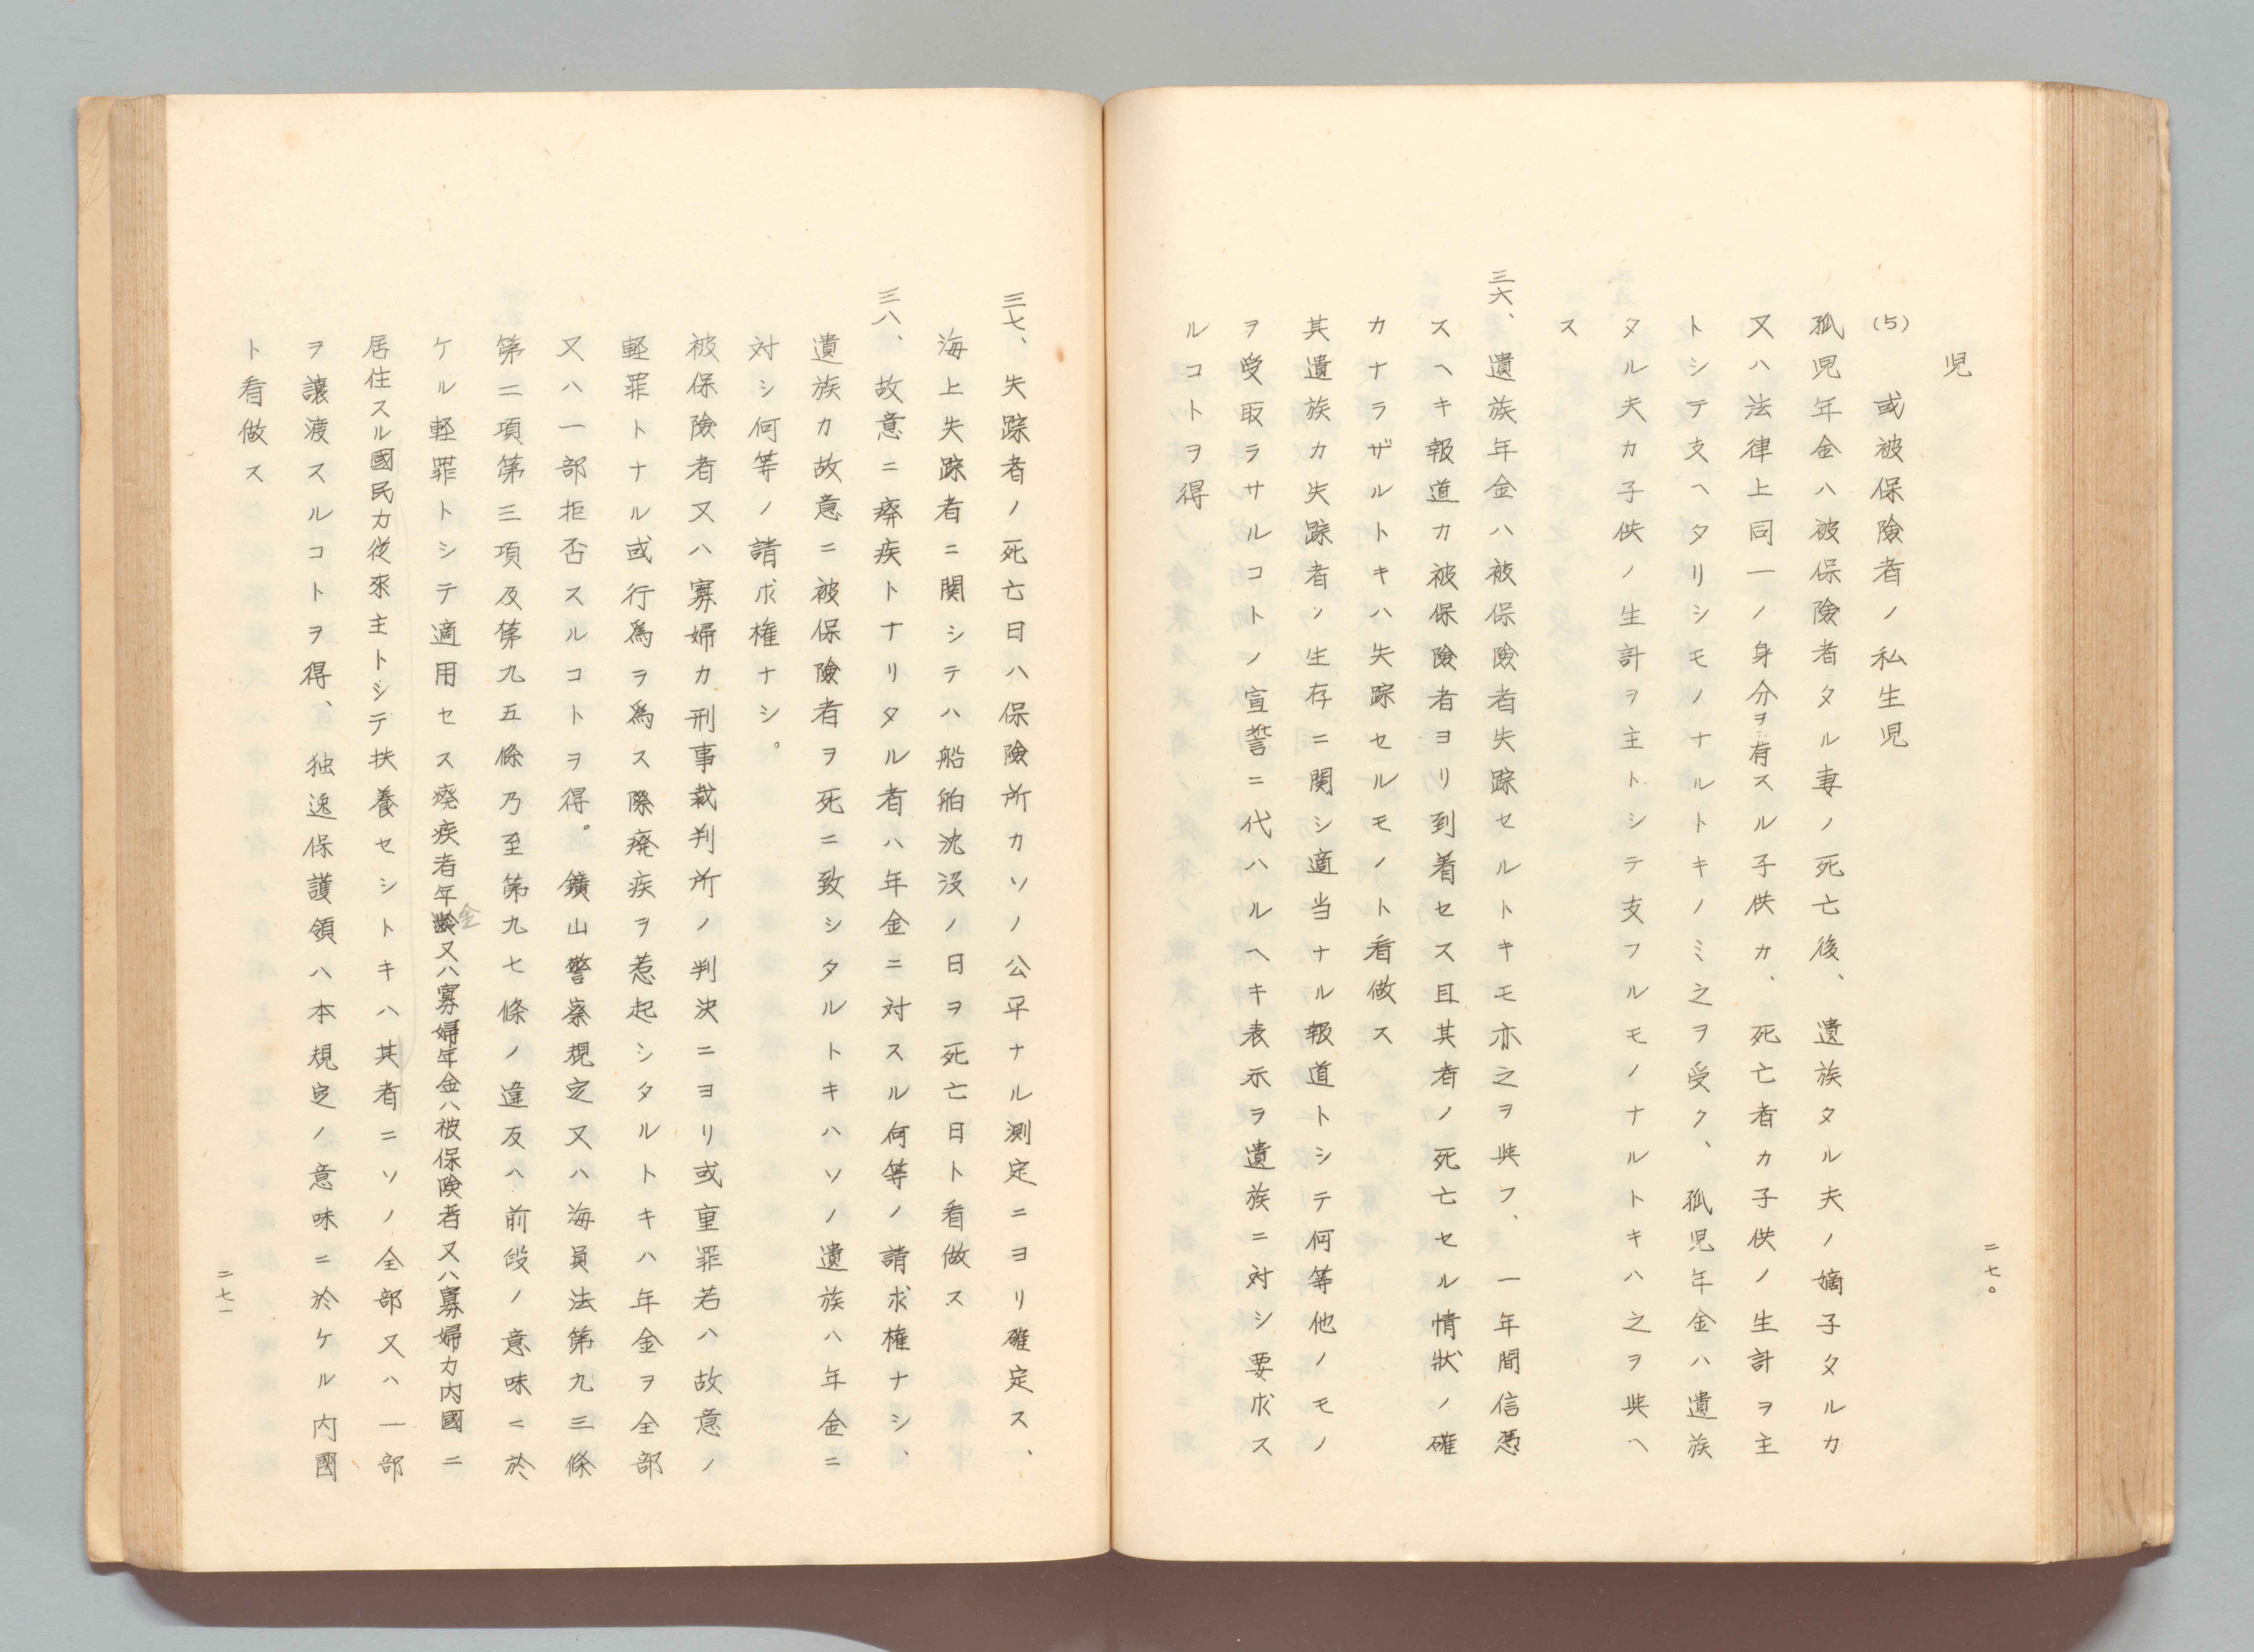 児
(5) 或被保険者ノ私生児
孤児年金ハ被保險者タル妻ノ死亡後、遺族タル夫ノ嫡子タルカ
又ハ法律上同一ノ身分ヲ有スル子供カ、死亡者カ子供ノ生計ヲ主
トシテ支ヘタリシモノナルトキノミ之ヲ受ク、孤児年金ハ遺族
タル夫カ子供ノ生計ヲ主トシテ支フルモノナルトキハ之ヲ與ヘ
ス
三六、遺族年金ハ被保險者失踪セルトキモ亦之ヲ與フ、一年間信憑
スヘキ報道カ被保險者ヨリ到着セス且其者ノ死亡セル情狀ノ確
カナラザルトキハ失踪セルモノト看做ス
其遺族カ失踪者ノ生存ニ関シ適当ナル報道トシテ何等他ノモノ
ヲ受取ラサルコトノ宣誓ニ代ハルヘキ表示ヲ遺族ニ対シ要求ス
ルコトヲ得
二七〇
三七、失踪者ノ死亡日ハ保險所カソノ公平ナル測定ニヨリ確定ス、
海上失踪者ニ関シテハ船舶沈没ノ日ヲ死亡日ト看做ス
三八、故意ニ癈疾トナリタル者ハ年金ニ対スル何等ノ請求権ナシ、
遺族カ故意ニ被保險者ヲ死ニ致シタルトキハソノ遺族ハ年金ニ
対シ何等ノ請求権ナシ。
被保險者又ハ寡婦カ刑事裁判所ノ判決ニヨリ或重罪若ハ故意ノ
軽罪トナル或行為ヲ為ス際癈疾ヲ惹起シタルトキハ年金ヲ全部
又ハ一部拒否スルコトヲ得。鑛山警察規定又ハ海員法第九三條
第二項第三項及第九五條乃至第九七條ノ違反ハ前段ノ意味ニ於
ケル軽罪トシテ適用セス癈疾者年金又ハ寡婦年金ハ被保険者又ハ寡婦カ内國ニ
居住スル國民カ従來主トシテ扶養セシトキハ其者ニソノ全部又ハ一部
ヲ讓渡スルコトヲ得、独逸保護領ハ本規定ノ意味ニ於ケル内國
ト看做ス
二七一